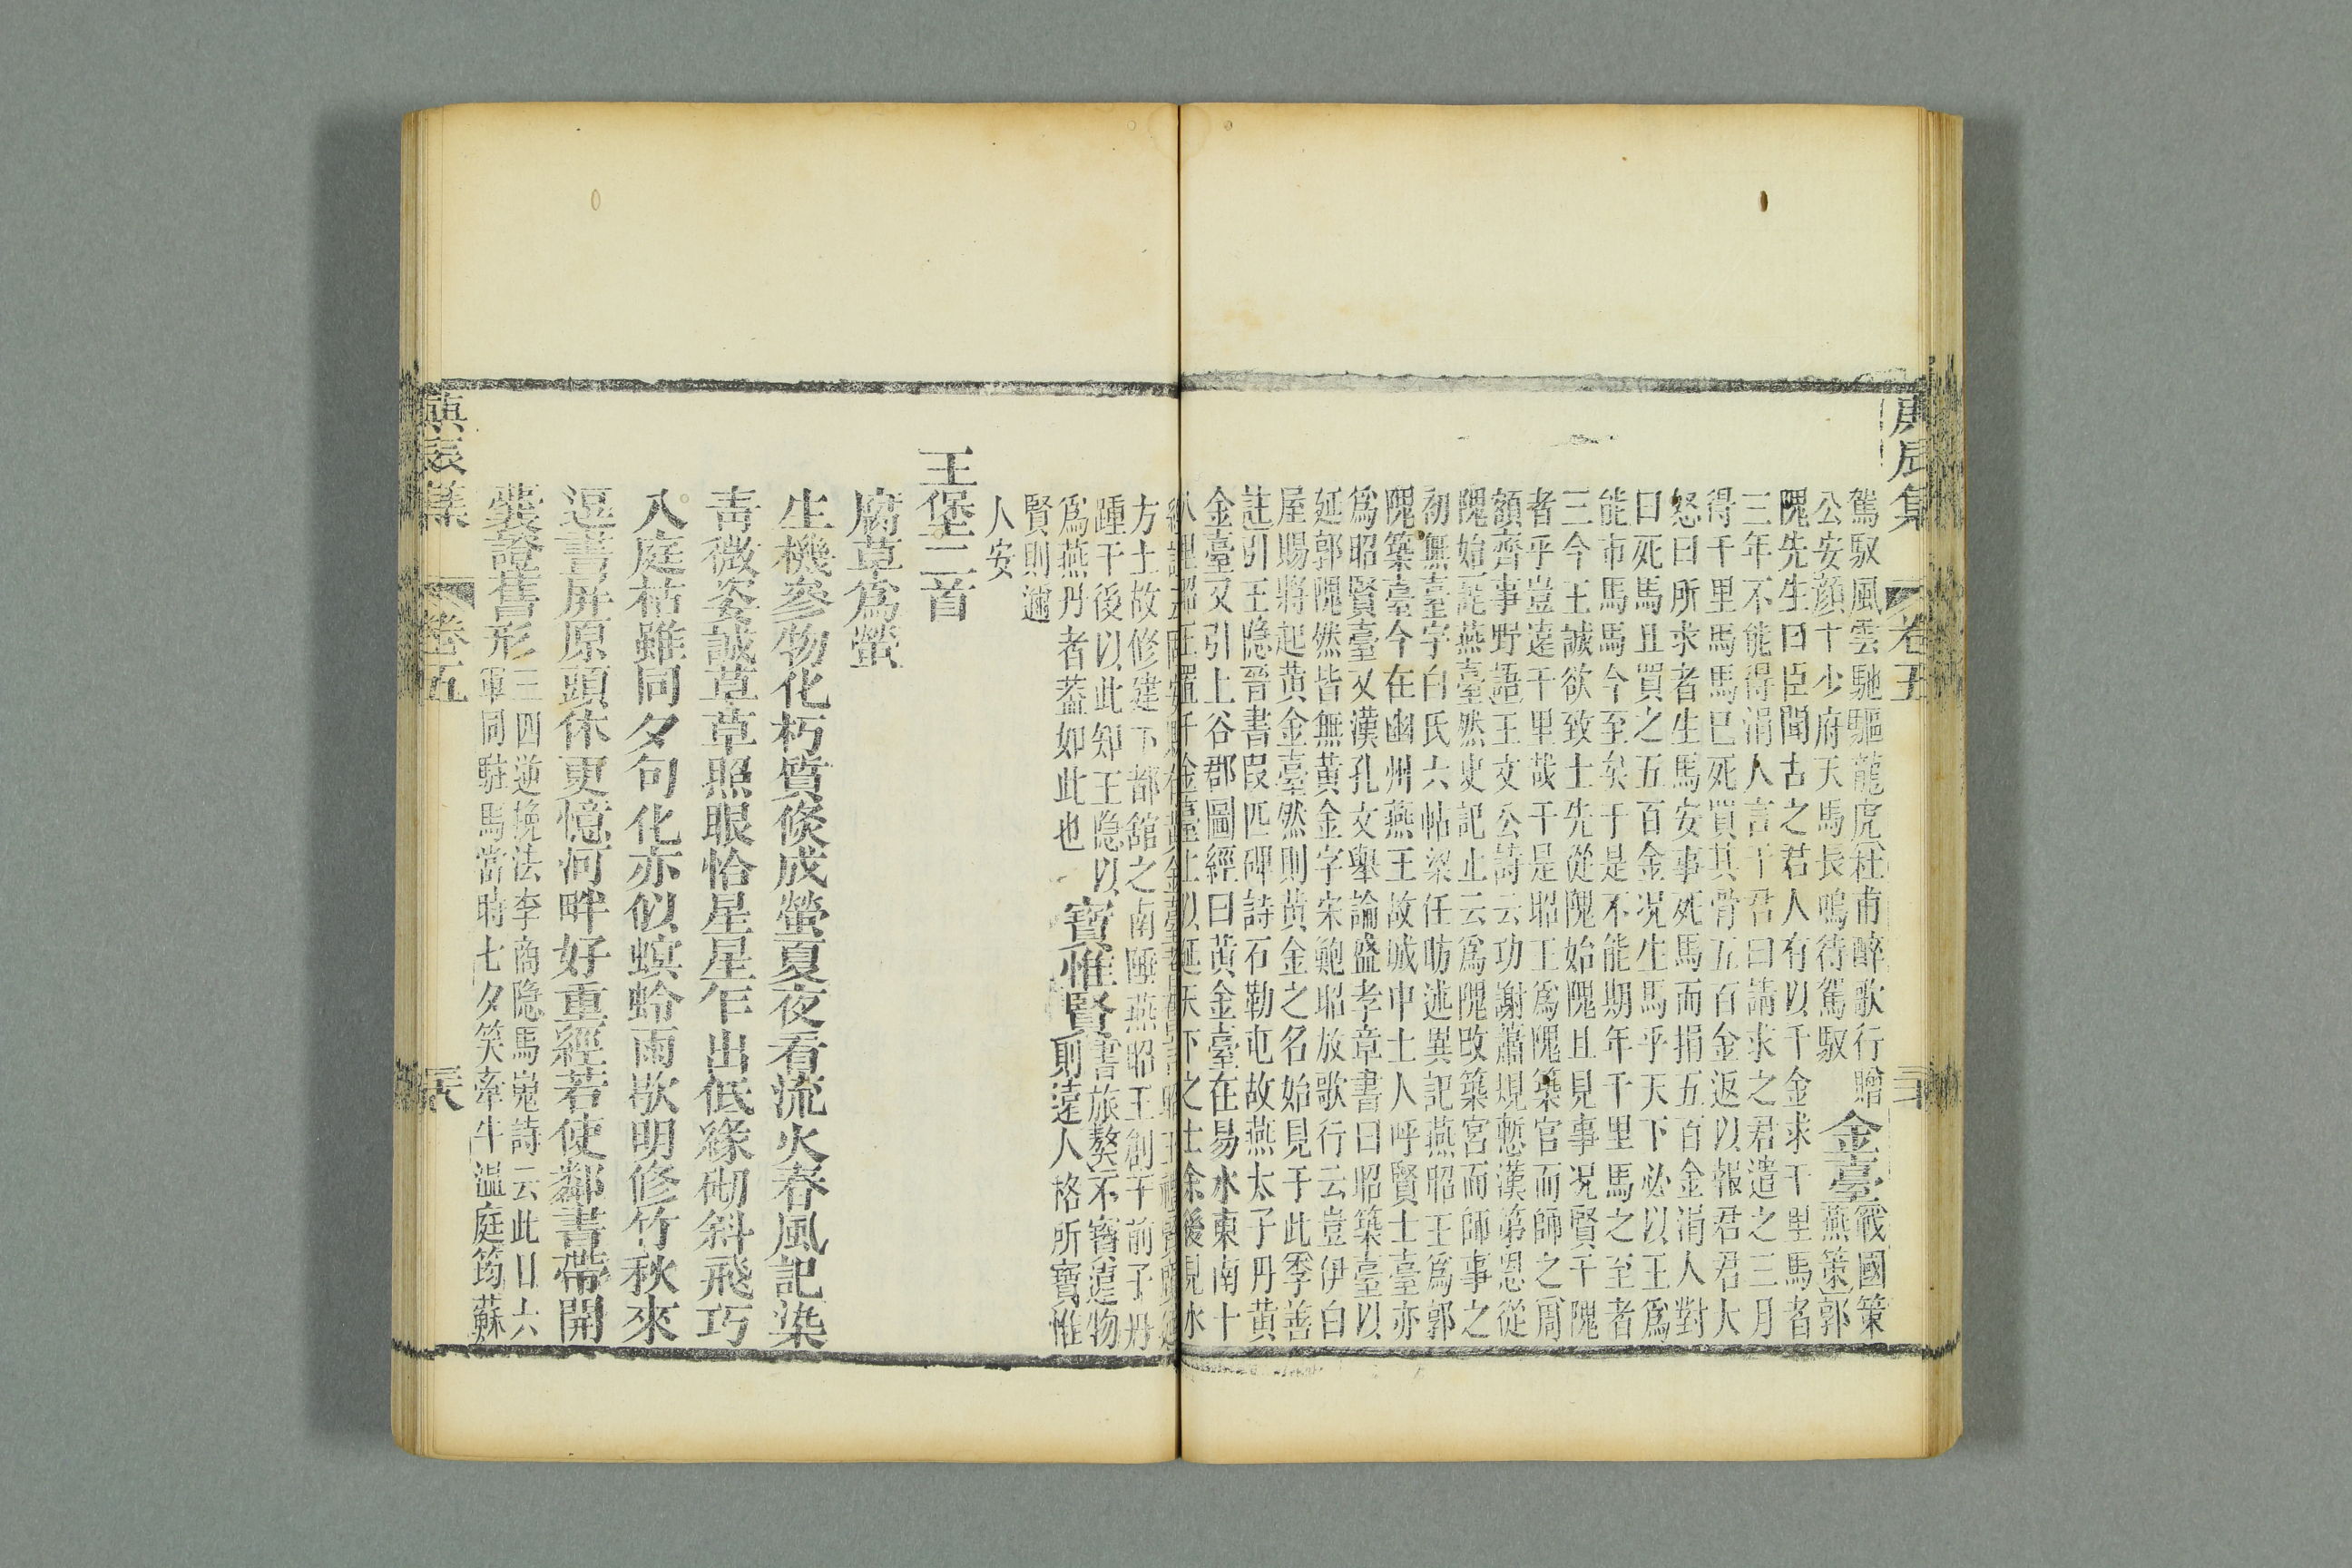 庚辰集 卷五
駕馭風雲馳驅龍虎杜甫醉歌行贈
公安顏十少府天馬長鳴待駕馭
金臺
戰國策
燕策郭
隗先生曰臣聞古之君人有以千金求千里馬者
三年不能得涓人言于君曰請求之君遣之三月
得千里馬馬已死買其骨五百金返以報君君大
怒曰所求者生馬安事死馬而捐五百金涓人對
曰死馬且買之五百金况生馬乎天下必以王爲
能市馬馬今至矣于是不能期年千里馬之至者
三今王誠欲致士先從隗始隗且見事况賢于隗
者乎豈遠千里哉于是昭王爲隗築宮而師之周
額齊事野語王文公詩云功謝蕭規慙漢第恩從
隗始詫燕臺然史記止云爲隗改築宮而師事之
初無臺字白氏六帖梁任昉述異記燕昭王爲郭
隗築臺今在幽州燕王故城中士人呼賢士臺亦
爲昭賢臺又漢孔文舉論盛孝章書曰昭築臺以
延郭隗然皆無黃金字宋鮑昭放歌行云豈伊白
屋賜將起黃金臺然則黃金之名始見于此李善
註引王隐晉書叚匹磾詩石勒屯故燕太子丹黃
金臺又引上谷郡圖經曰黃金臺在易水東南十
八里昭王置千金臺上以延天下之士余後見水
方土故修建下都舘之南陲燕昭王創于前子丹
踵于後以此知王隐以
爲燕丹者葢如此也
寶惟賢
書旅獒不寶遠物
則遠人格所寶惟
賢則邇
人安
王堡二首
腐草爲螢
生機參物化朽質倐成螢夏夜看流火春風記染
靑微姿誠草草照眼恰星星乍出低緣砌斜飛巧
入庭枯雖同夕句化亦似螟蛉雨歇明修竹秋來
逗畫屏原頭休更憶河畔好重經若使鄰書帶開
嚢證舊形
三四逆挽法李商隐馬嵬詩云此日六
軍同駐馬當時七夕笑牽牛溫庭筠蘇
卷五